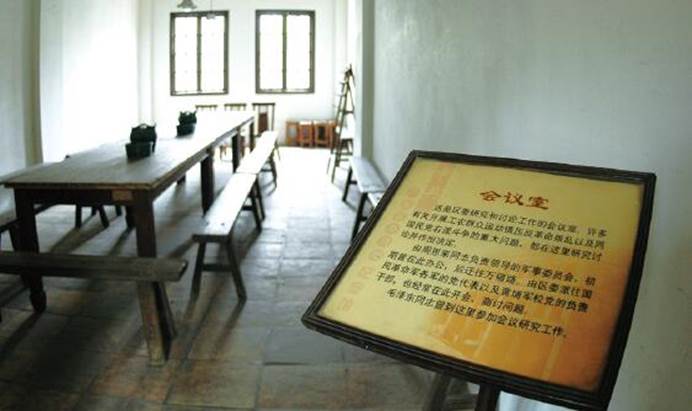 会议室
这是区委研究和讨论工作的会议室，许多
有关开展工农群众运动镇压反革命叛乱以及同
国民党右派斗争的重大问题，都在这里研究讨
论并作出决定。
由周恩来同志负责领导的军事委员会，初
期曾在此办公，后迁往万福路。由区委派往国
民革命军各军的党代表以及黄埔军校党的负责
干部，也经常在此开会，商讨问题。
毛泽东同志曾到这里参加会议研究工作。